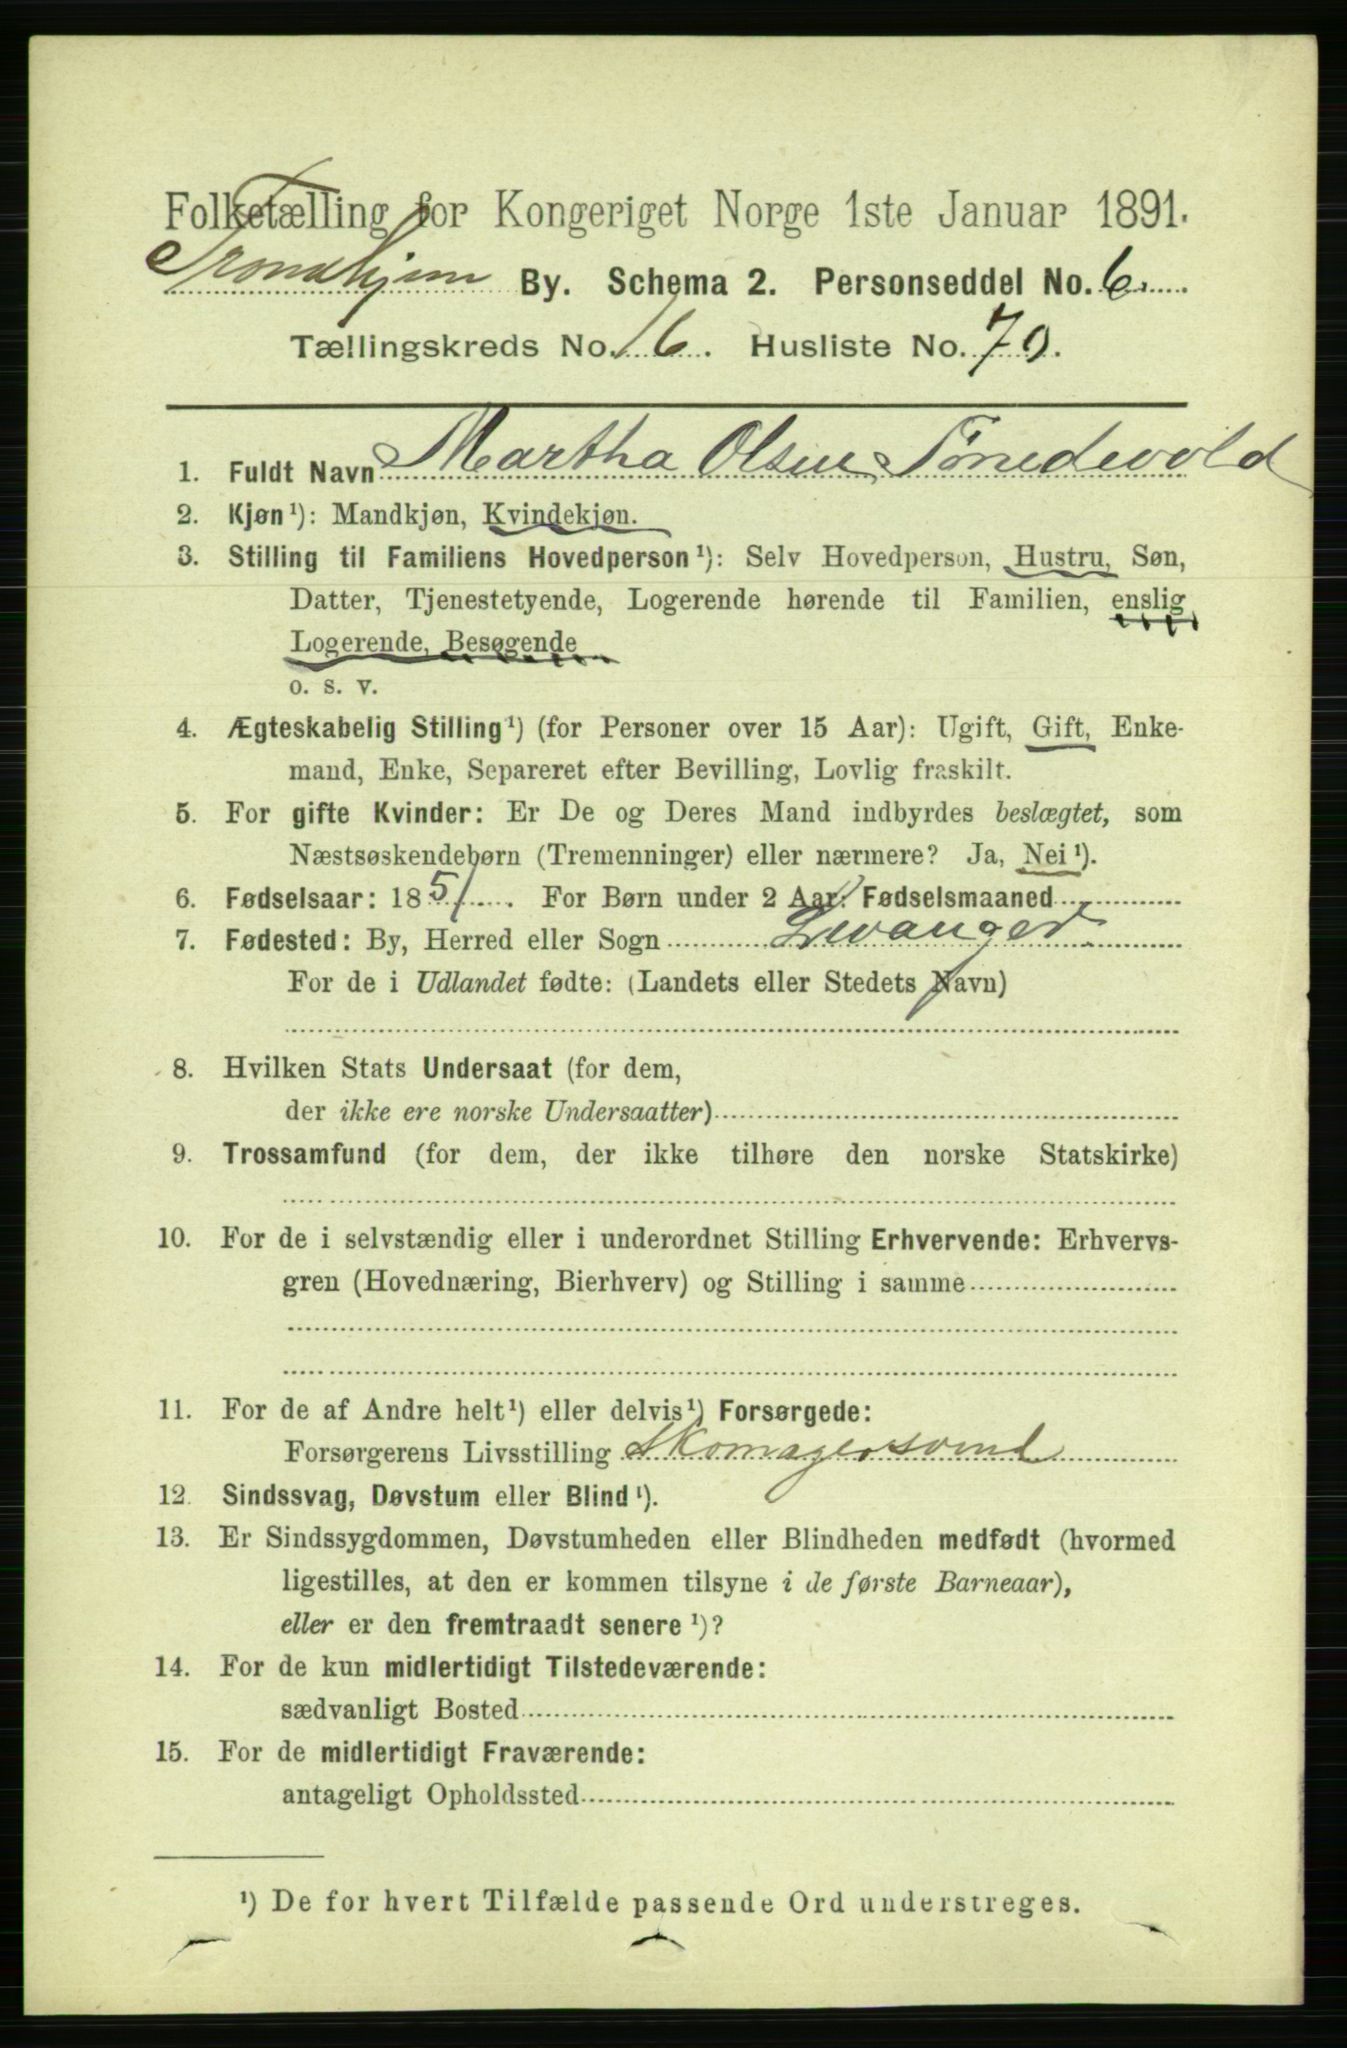 Folketælling for Kongeriget Norge 1ste Januar 1891.
Trondhjem By. Schema 2. Personseddel No. 6.
Tællingskreds No. 16. Husliste No. 70.
1. Fuldt Navn Martha Olsen Tønedevold
2. Kjøn¹): Mandkjøn, Kvindekjøn.
3. Stilling til Familiens Hovedperson¹): Selv Hovedperson, Hustru, Søn,
Datter, Tjenestetyende, Logerende hørende til Familien, enslig
Logerende, Besøgende
o. s. v.
4. Ægteskabelig Stilling¹) (for Personer over 15 Aar): Ugift, Gift, Enke-
mand, Enke, Separeret efter Bevilling, Lovlig fraskilt.
5. For gifte Kvinder: Er De og Deres Mand indbyrdes beslægtet, som
Næstsøskendebørn (Tremenninger) eller nærmere? Ja, Nei¹).
6. Fødselsaar: 1851. For Børn under 2 Aar: Fødselsmaaned
7. Fødested: By, Herred eller Sogn Levanger
For de i Udlandet fødte: (Landets eller Stedets Navn)
8. Hvilken Stats Undersaat (for dem,
der ikke ere norske Undersaatter)
9. Trossamfund (for dem, der ikke tilhøre den norske Statskirke)
10. For de i selvstændig eller i underordnet Stilling Erhvervende: Erhvervs-
gren (Hovednæring, Bierhverv) og Stilling i samme
11. For de af Andre helt¹) eller delvis¹) Forsørgede:
Forsørgerens Livsstilling Skomagersvend
12. Sindssvag, Døvstum eller Blind¹).
13. Er Sindssygdommen, Døvstumheden eller Blindheden medfødt (hvormed
ligestilles, at den er kommen tilsyne i de første Barneaar),
eller er den fremtraadt senere¹)?
14. For de kun midlertidigt Tilstedeværende:
sædvanligt Bosted
15. For de midlertidigt Fraværende:
antageligt Opholdssted
¹) De for hvert Tilfælde passende Ord understreges.